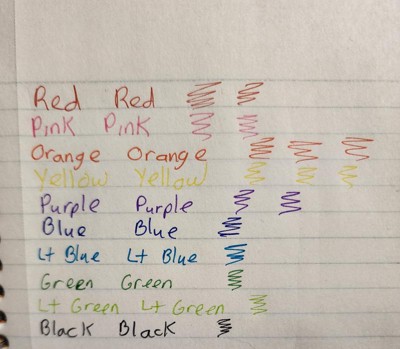 Red Red
Pink Pink
Orange Orange
Yellow Yellow
Purple Purple
Blue Blue
Lt Blue Lt Blue
Green Green
Lt Green Lt Green
Black Black